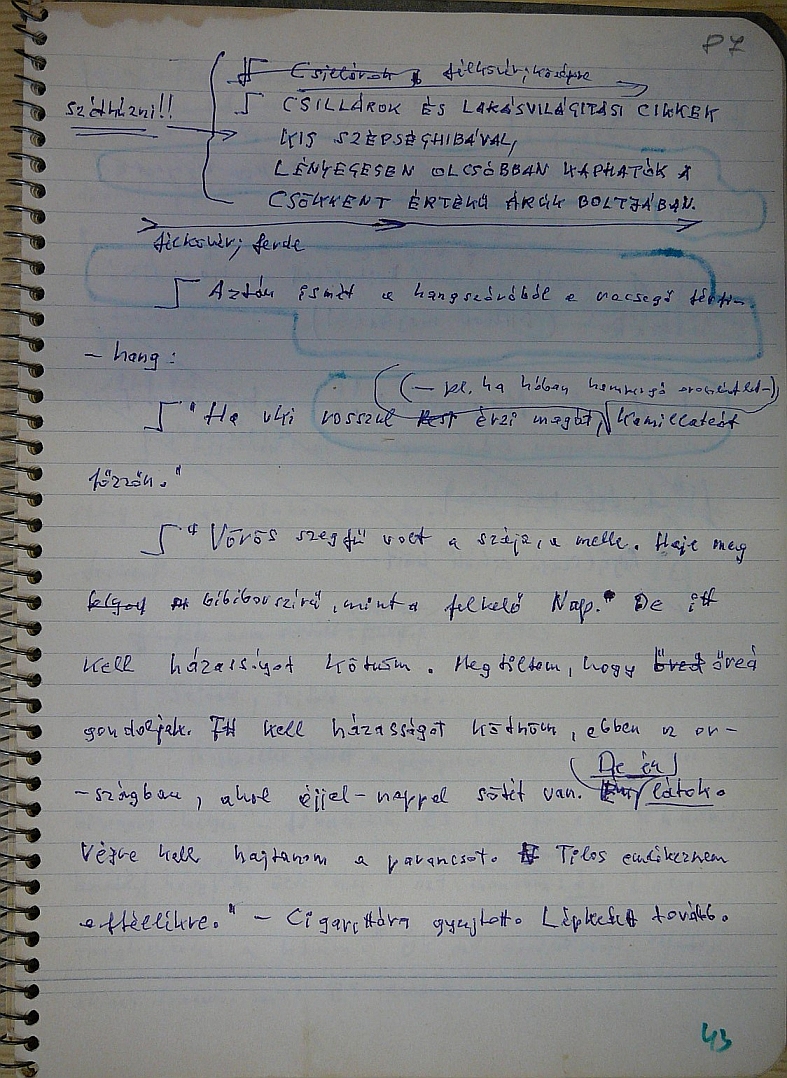 P7
Csillárok félkövér, középre
széthúzni!!
CSILLÁROK ÉS LAKÁSVILÁGITÁSI CIKKEK
KIS SZÉPSÉGHIBÁVAL,
LÉNYEGESEN OLCSÓBBAN KAPHATÓK A
CSÖKKENT ÉRTÉKÜ ÁRUK BOLTJÁBAN.
félkövér, ferde
Aztán ismét a hangszóróból a recsegő férfi-
- hang:
(— pl. ha hóban hempergő oroszlánt lát—)
"Ha vki rosszul érzi magát, kamillateát
főzzön."
"Vörös szegfű volt a szája, a melle. Haja meg
bibiborszinü, mint a felkelő Nap." De itt
kell házasságot kötnöm. Megtiltom, hogy őreá
gondoljak. Itt kell házasságot kötnöm, ebben az or-
De én
-szágban, ahol éjjel-nappel sötét van. látok.
Végre kell hajtanom a parancsot. Tilos emlékeznem
effélékre." — Cigarettára gyujtott. Lépkedett tovább.
43